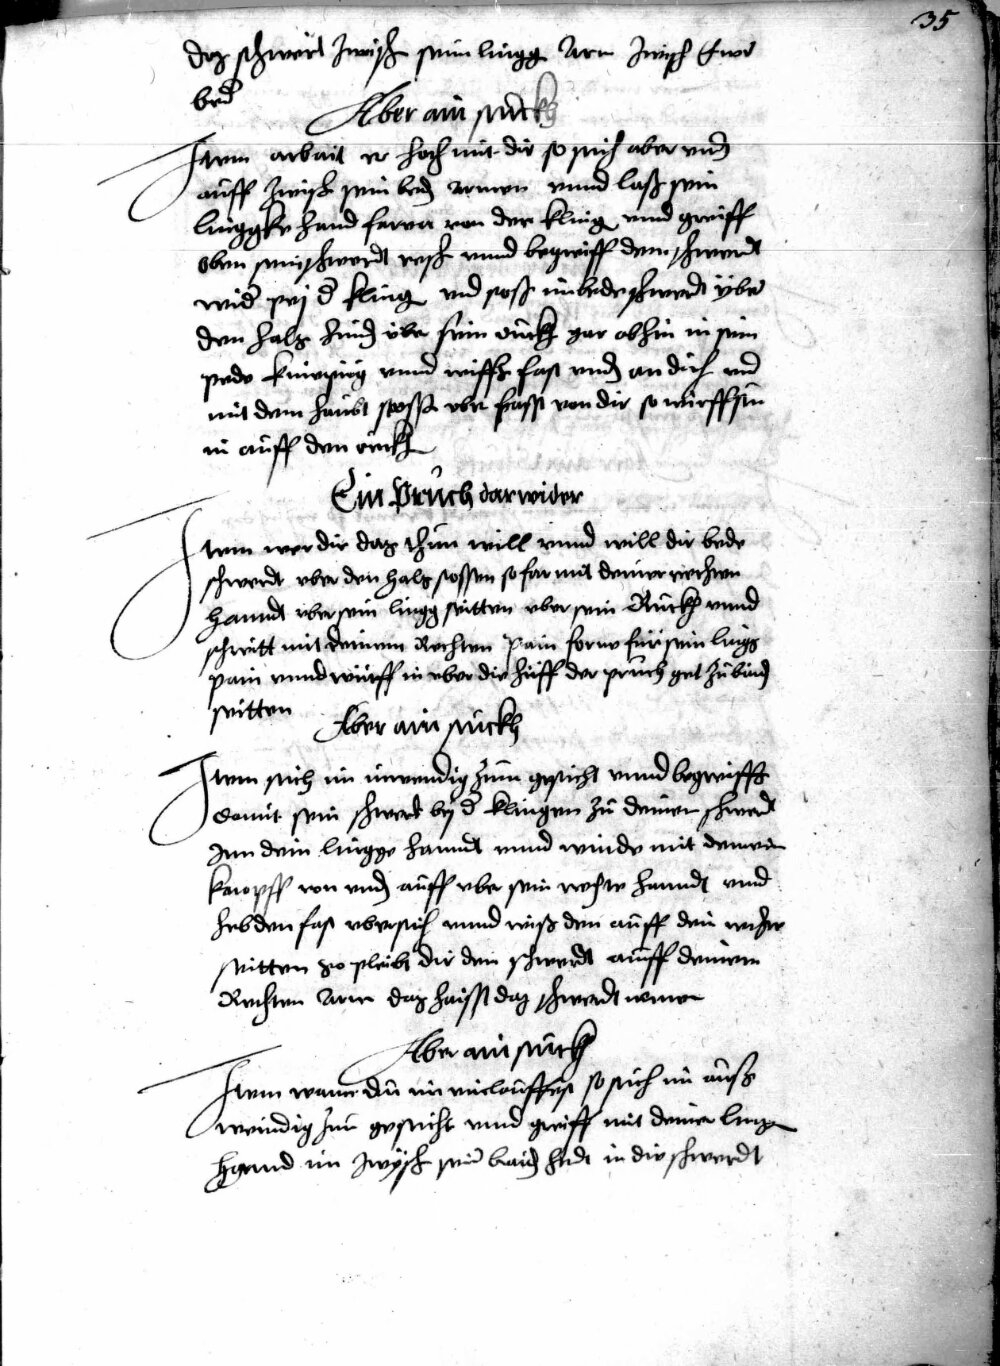 35
daz schwert zwischen seim lingg Arm zwisch Ewr
bed
Aber ain stuckh
Item arbait er hoch mit dir so stich aber unden
auff zwischen sein bed armen unnd laß sein
linggke hand faren von der kling und greiff
oben sein schwerdt resch unnd begreiff dem schwerdt
wider pej der kling und stoss im bede schwerdt über
den halz hinden über sein rückh gar abhin in sein
pede kniepüg unnd ruckhs fast unden an dich und
mit dem haubt stosse ober fasst von dir so würffstu
in auff den rückh
Ein Pruch darwider
Item wer dir daz thun will unnd will dir bede
schwerdt uber den halz stossen so far mit deiner rechten
hanndt uber sein lingg seitten uber sein Rückh unnd
schreitt mit deinem Rechten Pain forne für sein lingg
pain unnd würff in uber die hüff der pruch get zu baiden
seitten
Aber ain stückh
Item stich im inwendig zum gesicht unnd begreiffs
damit sein schwerdt bej der klingen zu deinem schwerdt
Inn dein lingge hanndt unnd winde mit deinem
knopff von unden auff uber sein rechte hanndt und
heb den fast ubersich unnd reiß den auff dein rechte
seitten so pleibt dir dein schwerdt auff deinem
Rechten Arm daz haisst daz schwerdt nemen
Aber ain stuckh
Item wann du im einlauffest so stich im auß
wendig zum gesicht unnd greiff mit deiner lingen
hannd im zwischen sein baiden hend in die schwerdt